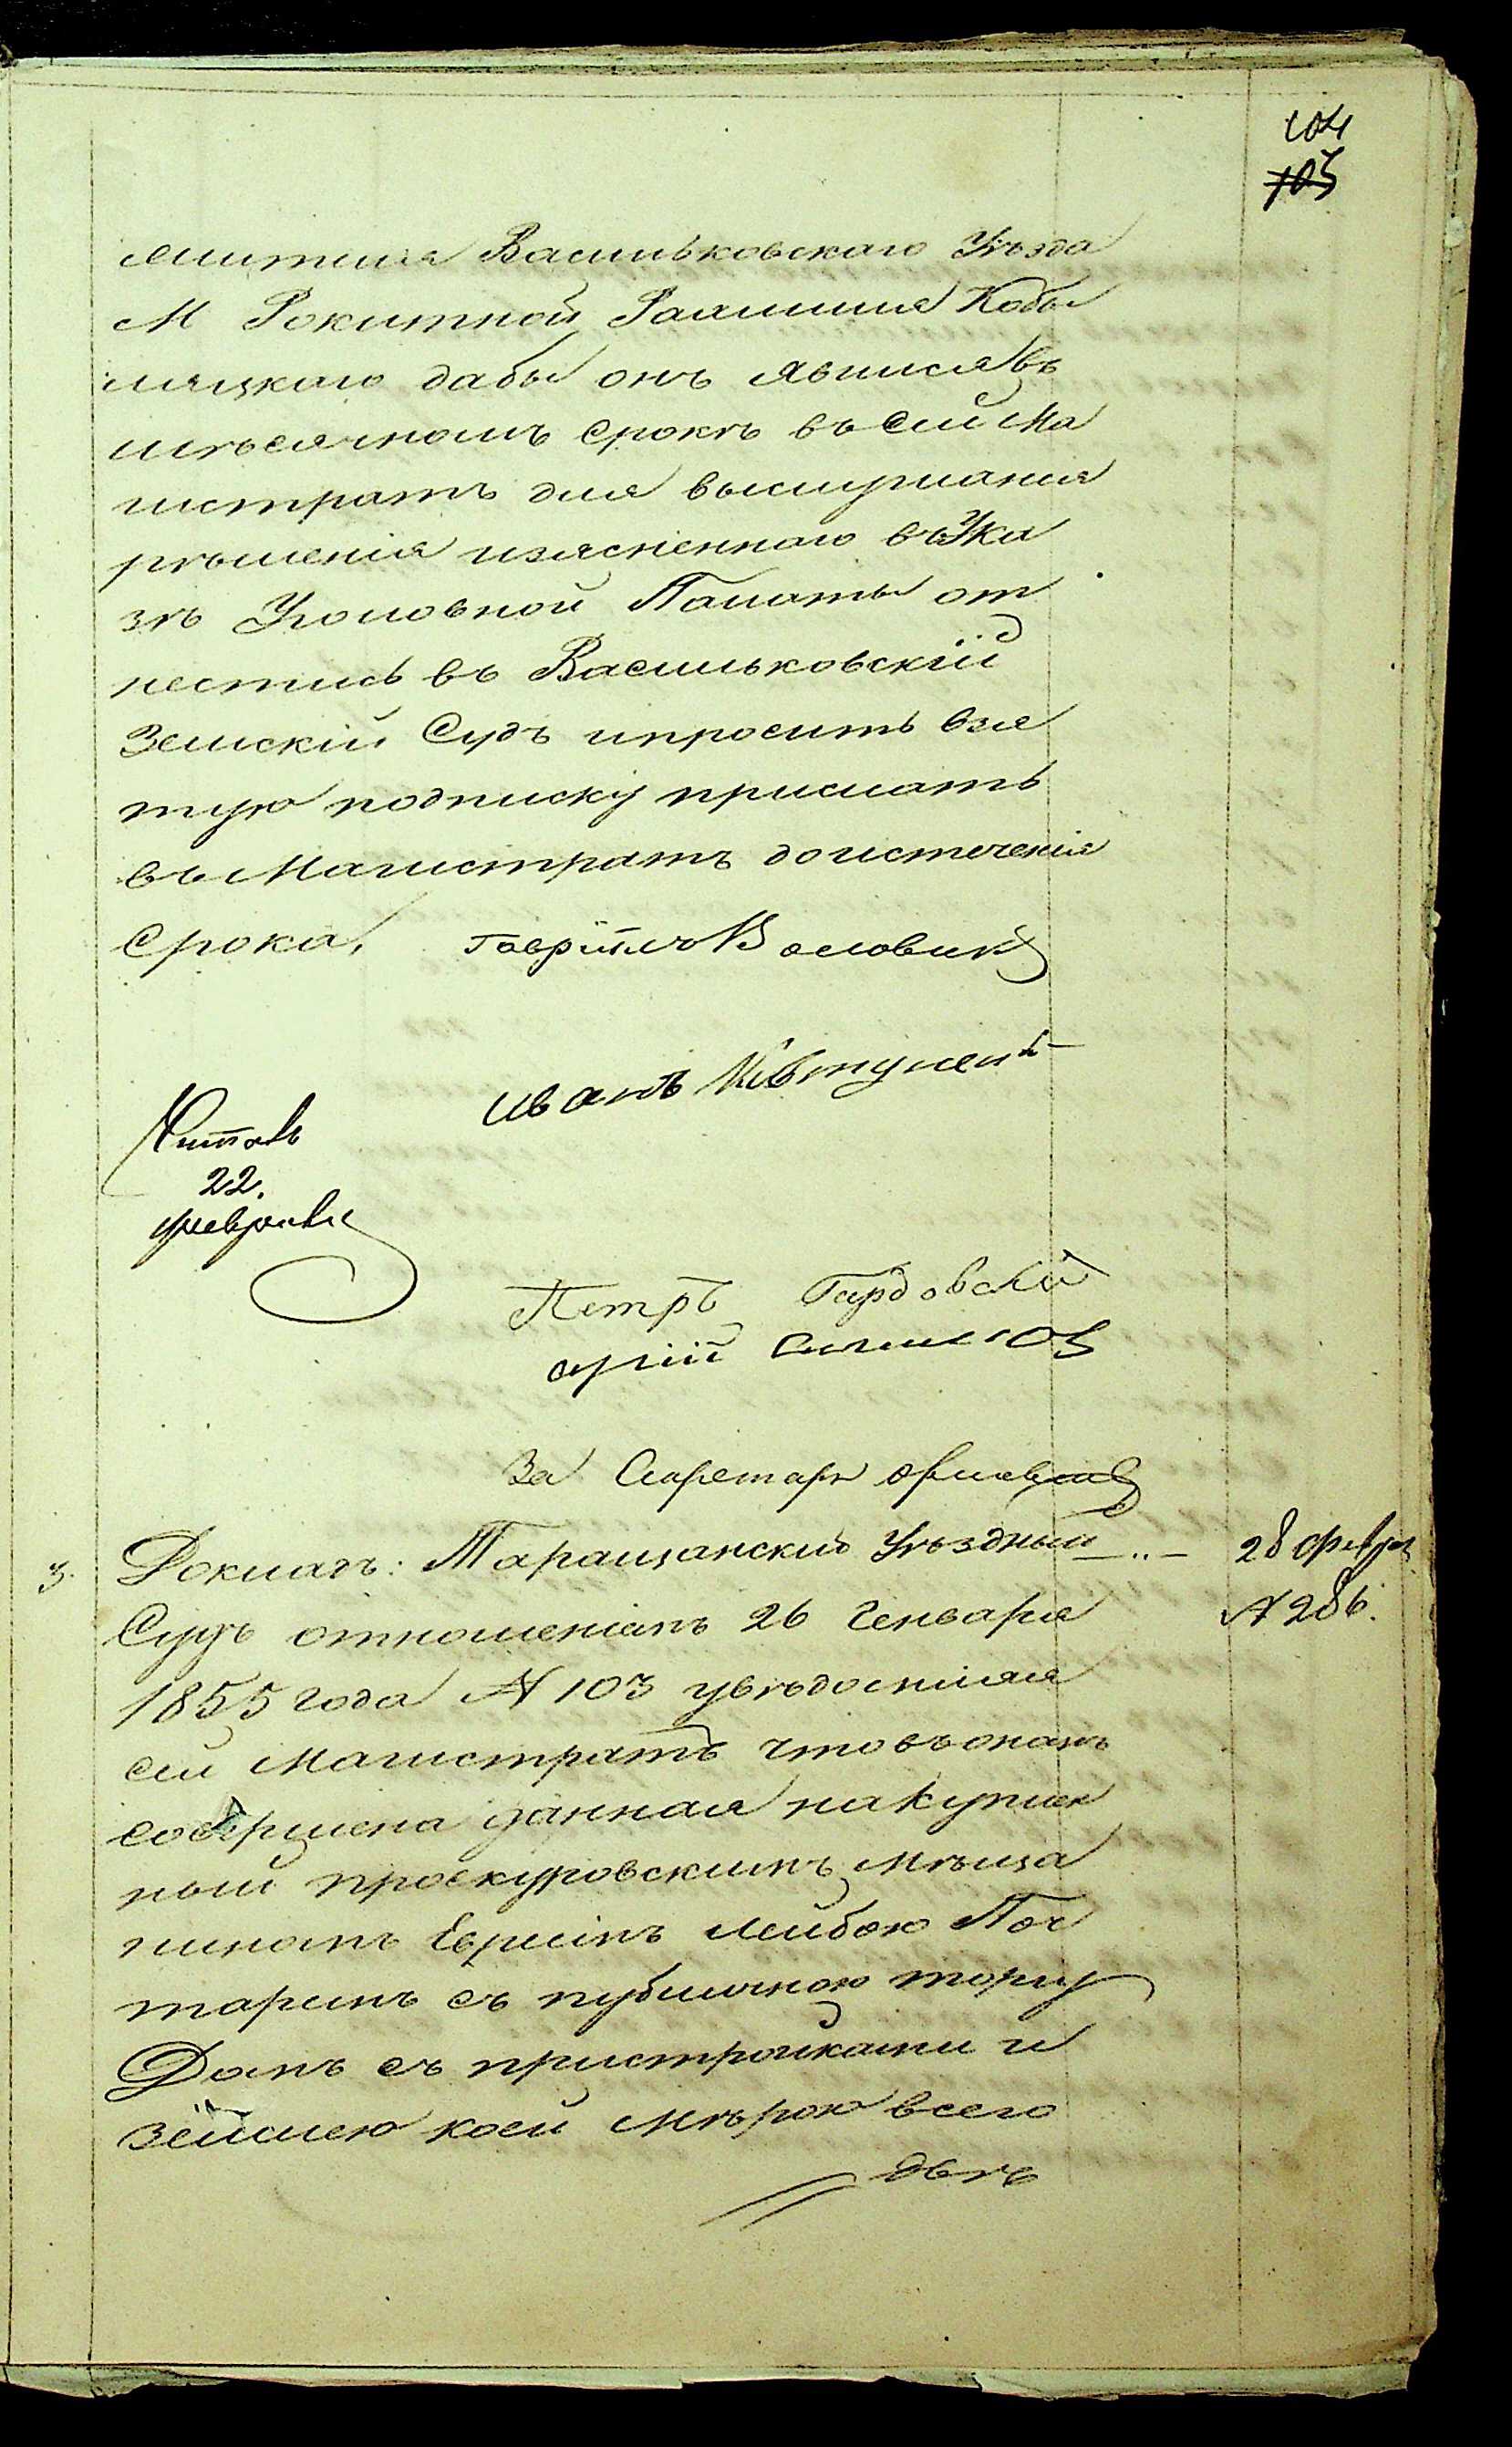 104
105
жителя Васильковскаго Уѣзда
М Рокитной Кобы
ляцкаго дабы онъ явился въ
мѣсячномъ срокѣ въ сей Ма
гистратъ для выслушанія
рѣшенія изясненнаго въ Ука
зѣ Уголовной Палаты от
нестись въ Васильковскій
Земскій Судъ и просить взя
тую подписку прислать
въ Магистратъ до истеченія
срока,
Гаврііло Воловик
Иванъ
Читалъ
22.
февраля
Петръ Гардовскій
За Секретаря
3. Докладъ: Таращанскій Уѣздный — 28 февра
Судъ отношеніемъ 26 Генваря № 286.
1855 года № 103 увѣдомляя
сей Магистратъ что въ ономъ
совершена данная на куплен
ный проскуровскимъ мѣща
ниномъ Евреімъ Лейбою Поч
таремъ съ публичного торгу
Домъ съ пристройками и
землею коей мѣрою всего
двѣ